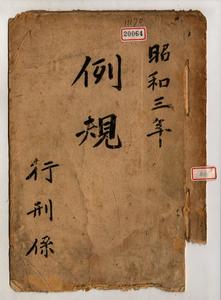 昭和三年
例規
行刑係
20064